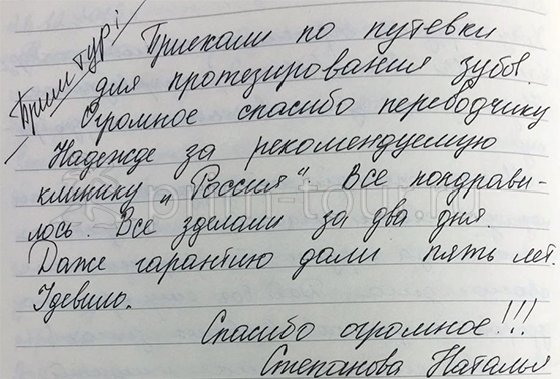 Прим Тур!
Приехали по путевки
для протезирования зубов.
Огромное спасибо переводчику
Надежде за рекомендуемую
клинику „Россия“. Все понправи-
лось. Все зделали за два дня.
Даже гарантию дали пять лет.
Удевило.
Спасибо огромное!!!
Степанова Наталья
prim-tour.ru